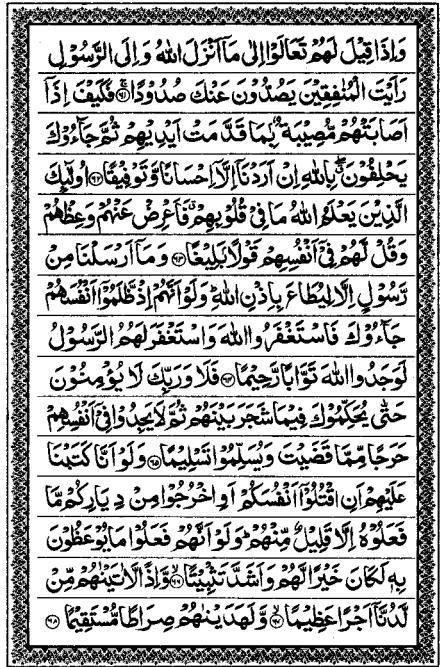 وَاِذَا قِيْلَ لَهُمْ تَعَالَوْا اِلٰى مَاۤ اَنْزَلَ اللّٰهُ وَاِلَى الرَّسُوْلِ
رَاَيْتَ الْمُنٰفِقِيْنَ يَصُدُّوْنَ عَنْكَ صُدُوْدًا ﴿۶۱﴾ فَكَيْفَ اِذَاۤ
اَصَابَتْهُمْ مُّصِيْبَةٌۢ بِمَا قَدَّمَتْ اَيْدِيْهِمْ ثُمَّ جَآءُوْكَ
يَحْلِفُوْنَ ۖ بِاللّٰهِ اِنْ اَرَدْنَاۤ اِلَّاۤ اِحْسَانًا وَّتَوْفِيْقًا ﴿۶۲﴾ اُولٰٓئِكَ
الَّذِيْنَ يَعْلَمُ اللّٰهُ مَا فِيْ قُلُوْبِهِمْ ۚ فَاَعْرِضْ عَنْهُمْ وَعِظْهُمْ
وَقُلْ لَّهُمْ فِيْۤ اَنْفُسِهِمْ قَوْلًاۢ بَلِيْغًا ﴿۶۳﴾ وَمَاۤ اَرْسَلْنَا مِنْ
رَّسُوْلٍ اِلَّا لِيُطَاعَ بِاِذْنِ اللّٰهِ ؕ وَلَوْ اَنَّهُمْ اِذْ ظَّلَمُوْۤا اَنْفُسَهُمْ
جَآءُوْكَ فَاسْتَغْفَرُوا اللّٰهَ وَاسْتَغْفَرَ لَهُمُ الرَّسُوْلُ
لَوَجَدُوا اللّٰهَ تَوَّابًا رَّحِيْمًا ﴿۶۴﴾ فَلَا وَرَبِّكَ لَا يُؤْمِنُوْنَ
حَتّٰى يُحَكِّمُوْكَ فِيْمَا شَجَرَ بَيْنَهُمْ ثُمَّ لَا يَجِدُوْا فِيْۤ اَنْفُسِهِمْ
حَرَجًا مِّمَّا قَضَيْتَ وَيُسَلِّمُوْا تَسْلِيْمًا ﴿۶۵﴾ وَلَوْ اَنَّا كَتَبْنَا
عَلَيْهِمْ اَنِ اقْتُلُوْۤا اَنْفُسَكُمْ اَوِ اخْرُجُوْا مِنْ دِيَارِكُمْ مَّا
فَعَلُوْهُ اِلَّا قَلِيْلٌ مِّنْهُمْ ؕ وَلَوْ اَنَّهُمْ فَعَلُوْا مَا يُوْعَظُوْنَ
بِهٖ لَكَانَ خَيْرًا لَّهُمْ وَاَشَدَّ تَثْبِيْتًا ﴿۶۶﴾ وَّاِذًا لَّاٰتَيْنٰهُمْ مِّنْ
لَّدُنَّاۤ اَجْرًا عَظِيْمًا ﴿۶۷﴾ وَّلَهَدَيْنٰهُمْ صِرَاطًا مُّسْتَقِيْمًا ﴿۶۸﴾